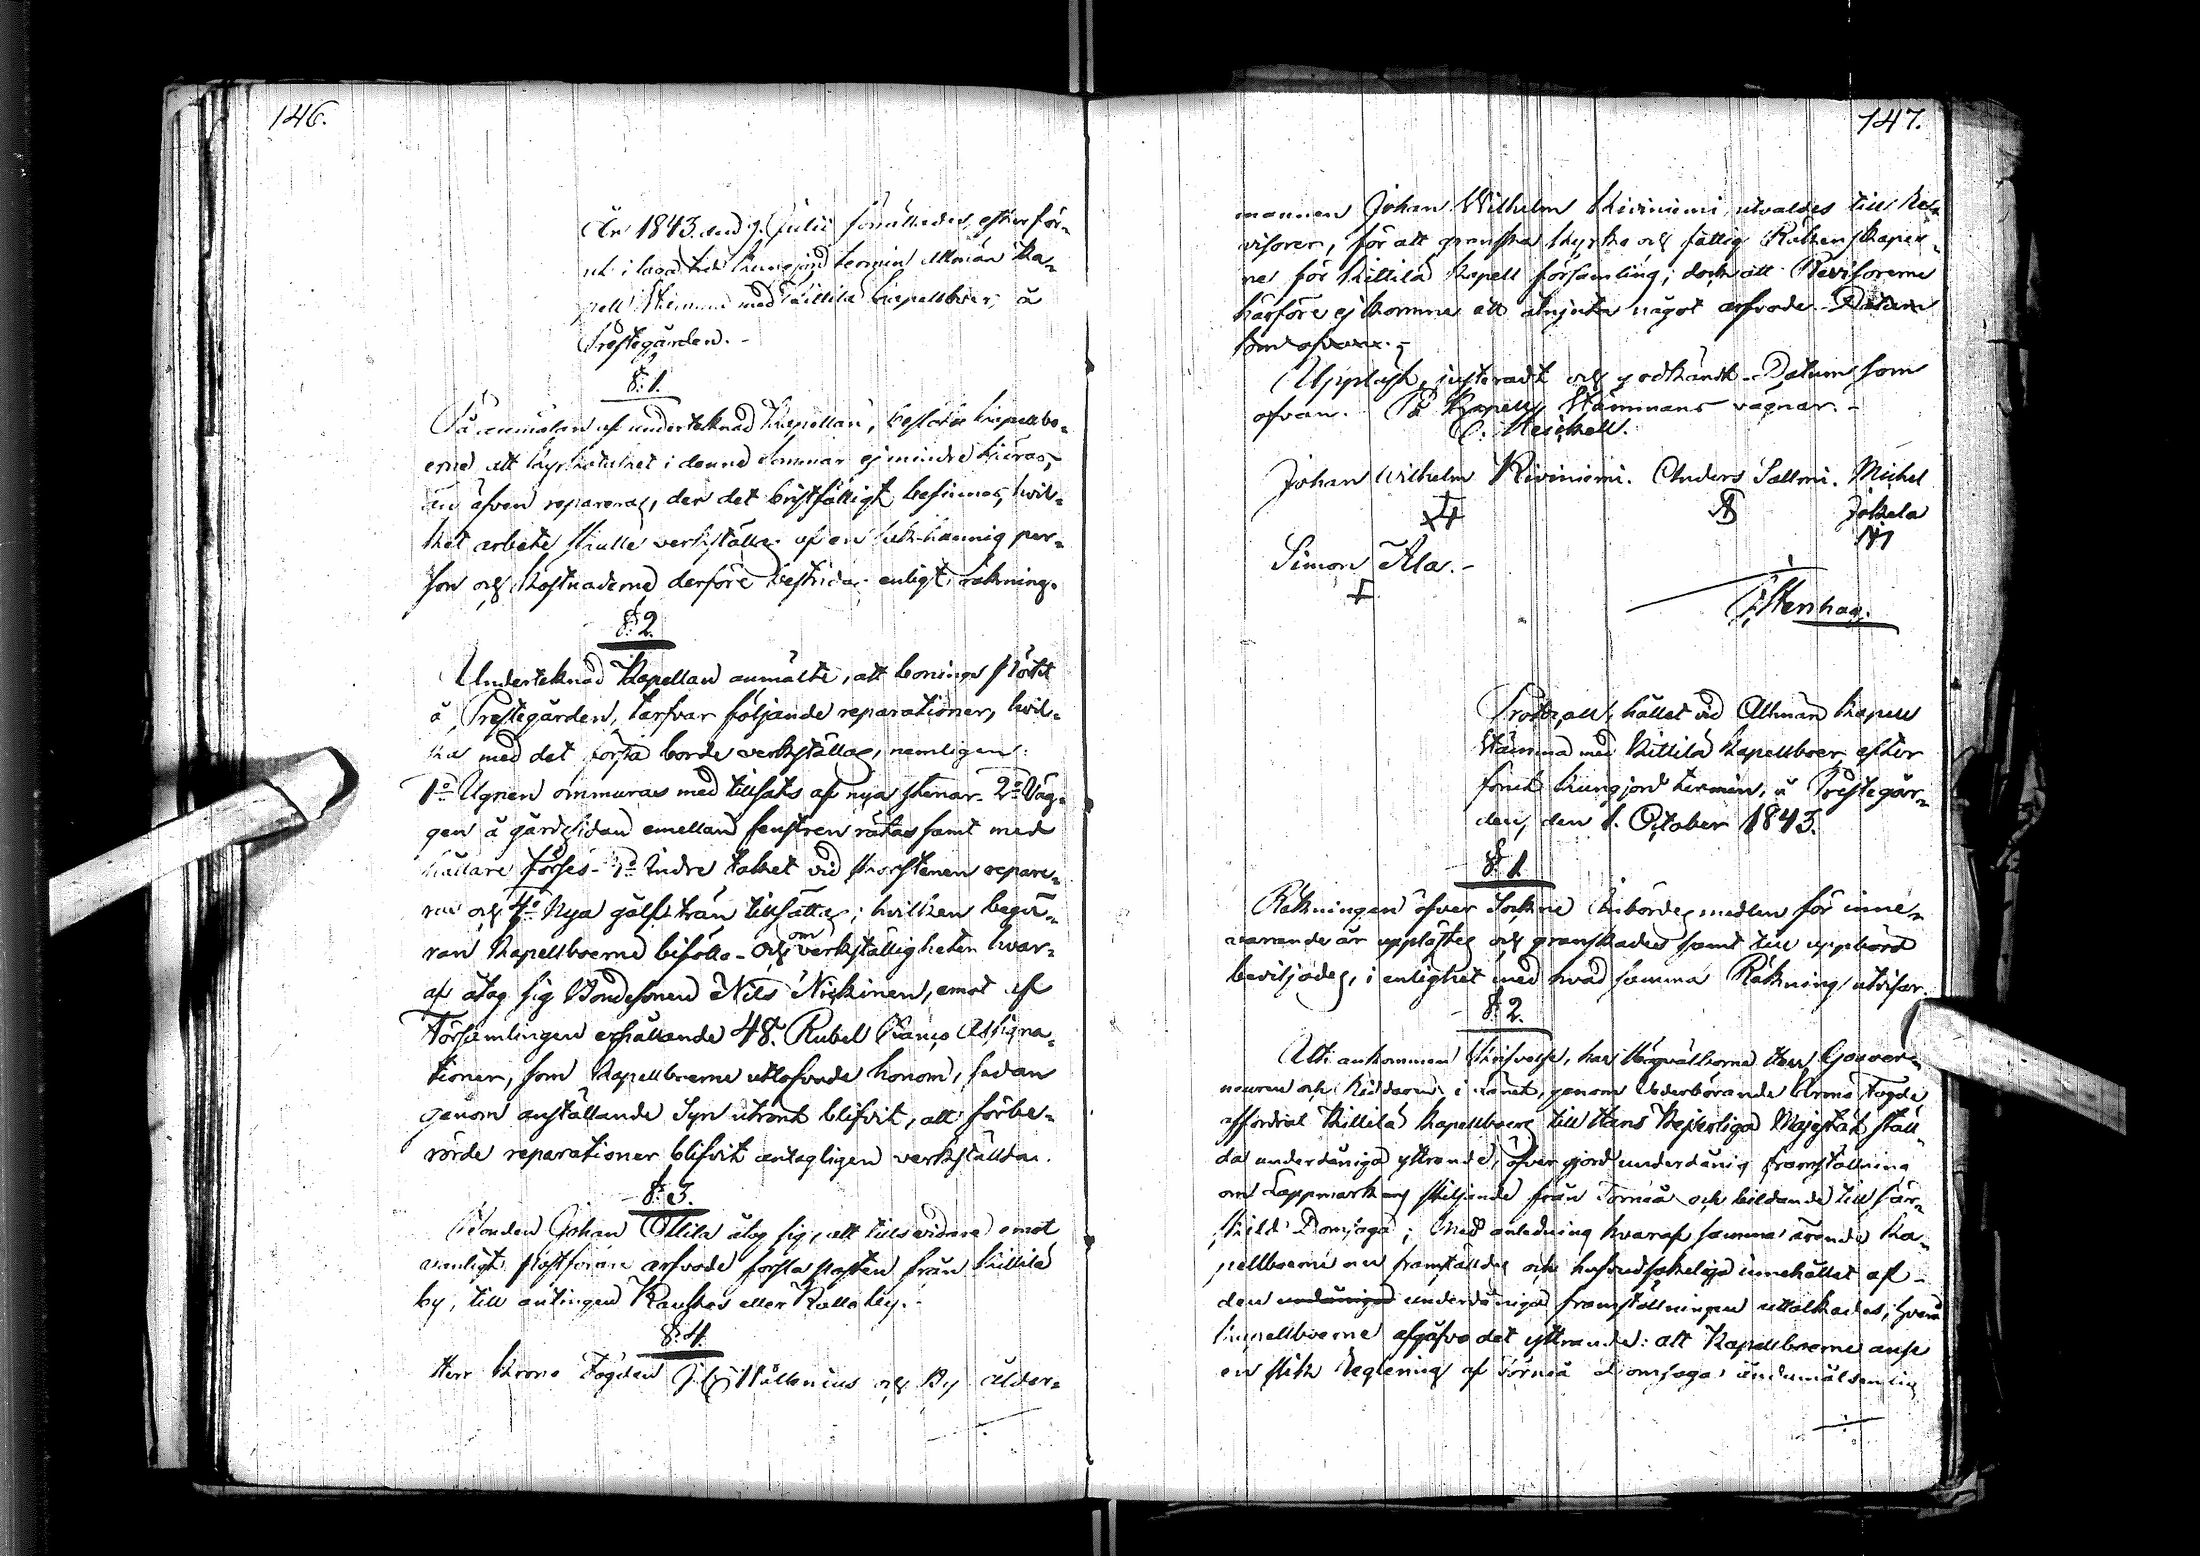 146.
År 1843. den 9. Julii förrättades, efter för-
ut i laga tid kungjord termin Allmän Ka-
pell Stämma med Kittilä Kapellboer, å
Prestegården. -
§. 1.
På anmälan af undertecknad Kapellan, beslöto Kapellbo-
erne att Kyrkotaket i denne Sommar ej mindre tjäras,
än äfven repareras, der det bristfälligt befinnes, hvil-
ket arbete skulle verkställas af en sak-kunnig per-
son och Kostnaderne derföre bestridas enligt räkning.
§. 2.
Undertecknad Kapellan anmälte, att bonings pörtet
å Prestegården, tarfvar följande reparationer, hvil-
ka med det första borde verkställas, nemligen:
1o Ugnen ommuras med tillsats af nya stenar. 2o Väg-
gen å gårdssidan emellan fenstren rätas samt med
hållare förses - 3o Indre taket vid skorstenen repare-
ras och 4o Nya golfsträn tillsättas; hvilken begä-
ran Kapellboerne biföllo - och om verkställigheten hvar-
af åtog sig Bondesonen Nils Nickinen, emot af
Församlingen erhållande 48. Rubel Banco Assigna-
tioner, som Kapellboerne utlofvade honom, sedan
genom anställande Syn utrönt blifvit, att förbe-
rörde reparationer blifvit antagligen verkställda.
§. 3.
Bonden Johan Ollila åtog sig, att tills vidare emot
vanligt postförare arfvode forsla posten från Kittilä
by, till antingen Kaukos eller Rallo by. -
§. 4.
Herr Krono Fogden Hållenius och By ålder-
147.
mannen Johan Wilhelm Kiviniemi, utvaldes till Re-
visorer, för att granska Kyrko och fattig Räkenskaper-
ne för Kittilä Kapell församling; dock att Revisorerne
härföre ej komme att åtnjuta något arfvode. - Datum
som ofvan. -
Uppläst, justeradt och godkändt - Datum som
ofvan. På Kapell Stämmans vägnar. -
C. Heickell.
Johan Wilhelm Kiviniemi. Anders Salmi. Michel
Jokela
Simon Kla. -
Stenhag.
Protocoll, hållet vid Allmän Kapell
Stämma med Kittilä Kapellboer, efter
förut kungjord termin, å Prestegår-
den, den 1. October 1843.
§. 1.
Räkningen öfver Sockne Inbördes medlen för inne-
varande år upplästes och granskades samt till uppbörd
beviljades, i enlighet med hvad samma Räkning utvisar.
§. 2.
Uti ankommen Skrifvelse, har Högvälborne Herr Gouver-
neuren och Riddaren i Länet, genom Vederbörande Krono Fogde
affordrat Kittilä Kapellboers till Hans Kejserliga Majestät ställ-
da underdåniga yttrande, öfver gjord underdånig framställning
om Lappmarkens skiljande från Torneå och bildande till sär-
skild Domsaga; Med anledning hvaraf samma ärende Ka-
pellboerne nu framställdes och hufvudsakeliga innehållet af
den underdåniga framställningen uttolkades, hvarå
Kapellboerne afgåfvo det yttrande: att Kapellboerne anse
en slik reglering af Torneå Domsaga ändamålsenlig